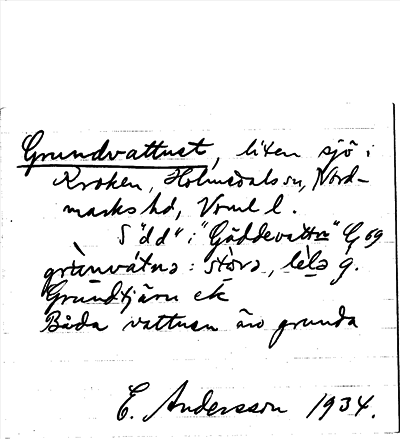 Grundvattnet, liten sjö i
Kroken, Holmedals sn, Nord-
marks hd, Vrml l.
S "dd" i "Gäddevattn" G 69
: stora, lela g.
Grundtjärn ek
Båda vattnen äro grunda
E. Andersson 1934.